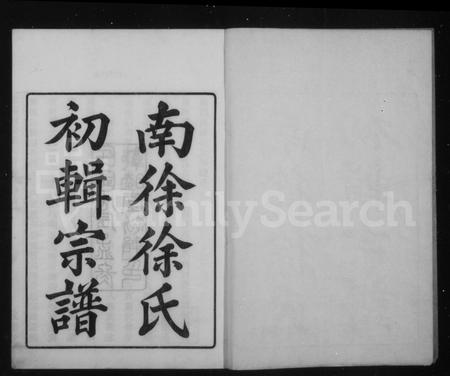 南徐徐氏
初輯宗譜
FamilySearch